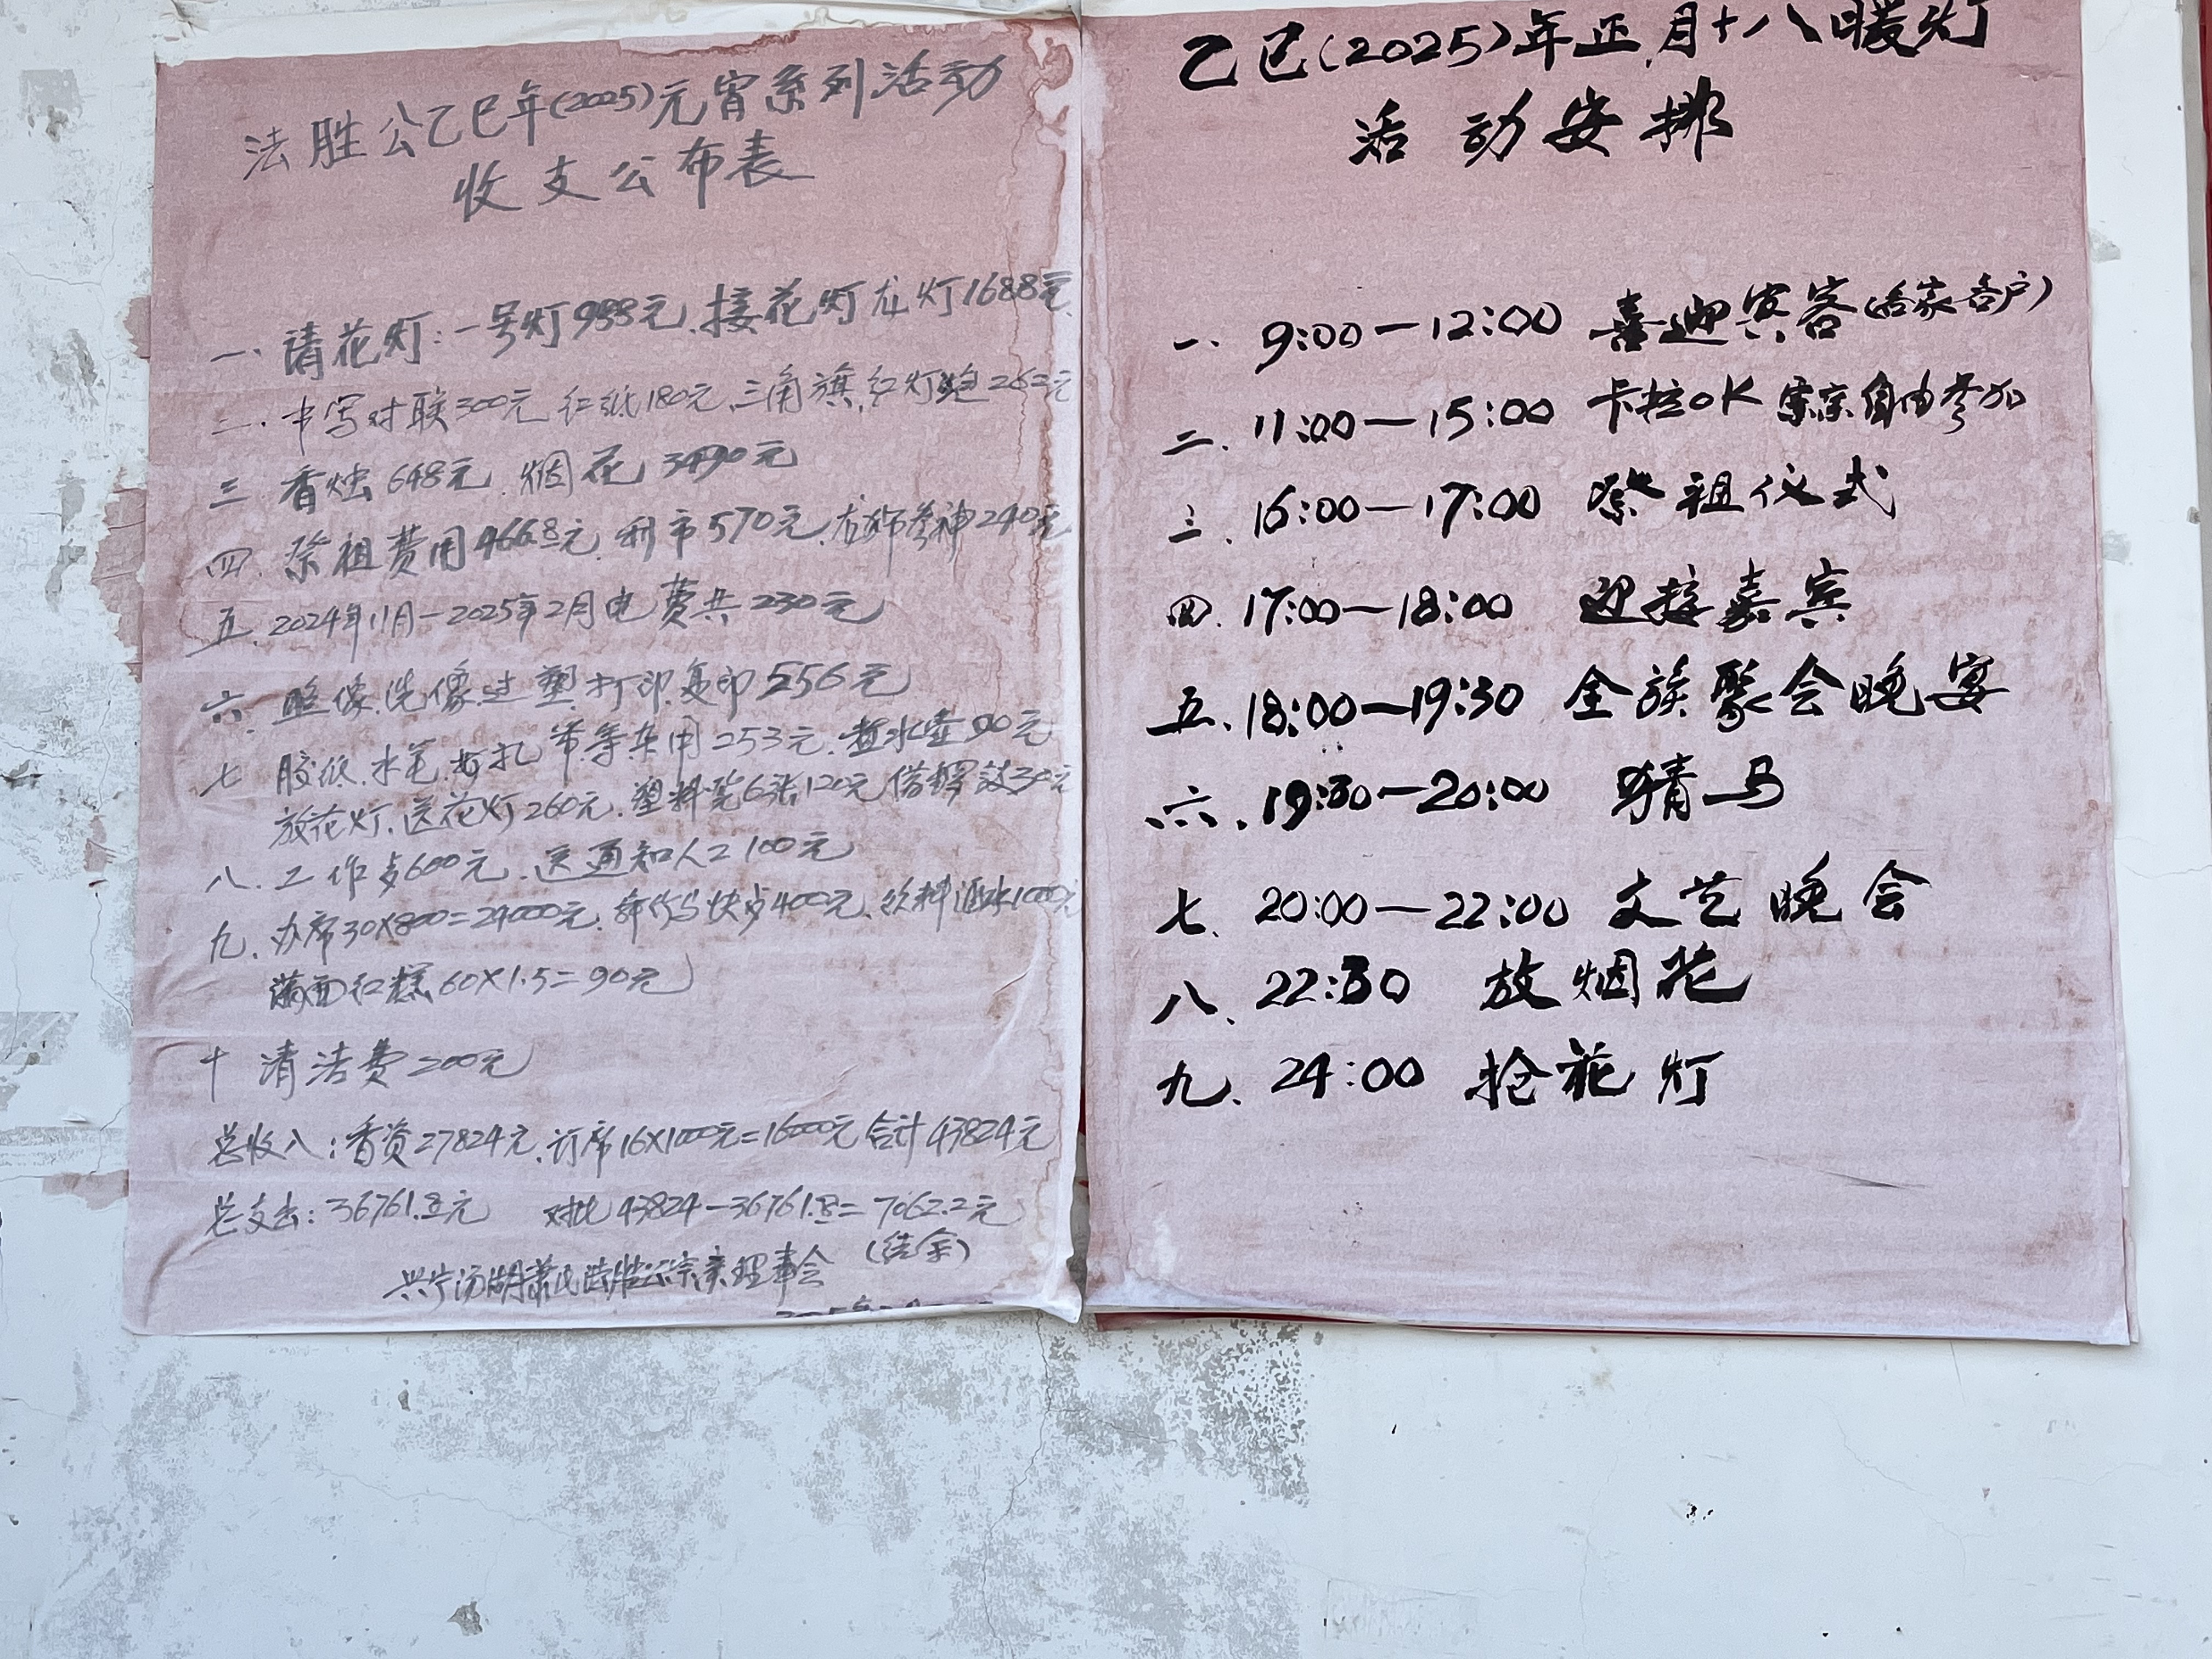 法胜公乙巳年(2025)元宵系列活动
收支公布表
一. 请花灯:一号灯988元.接花灯龙灯1688元
二. 书写对联300元 红纸180元.三角旗.红灯炮262元
三 香烛648元.烟花3490元
四. 祭祖费用466.8元.利市570元.龙狮参神240元
五. 2024年11月-2025年2月电费共230元
六. 照像.洗像.过塑.打印.复印556元
七 胶纸.水笔.扎带等杂用253元.煮水壶90元
放花灯.送花灯260元.塑料凳6张120元 借锣鼓30元
八. 工作 600元.送通知人工100元
九. 办席30X800=24000元. 400元.饮料酒水1000元
红糕60X1.5=90元
十 清洁费200元
总收入:香资27824元.订席16X1000元=16000元 合计43824元
总支出:36761.8元 对比43824-36761.8=7062.2元
(结余)
兴宁汤湖萧氏法胜公宗亲理事会
乙巳(2025)年正月十八暖灯
活动安排
一. 9:00—12:00 喜迎宾客(各家各户)
二. 11:00—15:00 卡拉OK 宗亲自由参加
三. 16:00—17:00 祭祖仪式
四. 17:00—18:00 迎接嘉宾
五. 18:00—19:30 全族聚会晚宴
六. 19:30—20:00 猜马
七. 20:00—22:00 文艺晚会
八、22:30 放烟花
九. 24:00 抢花灯